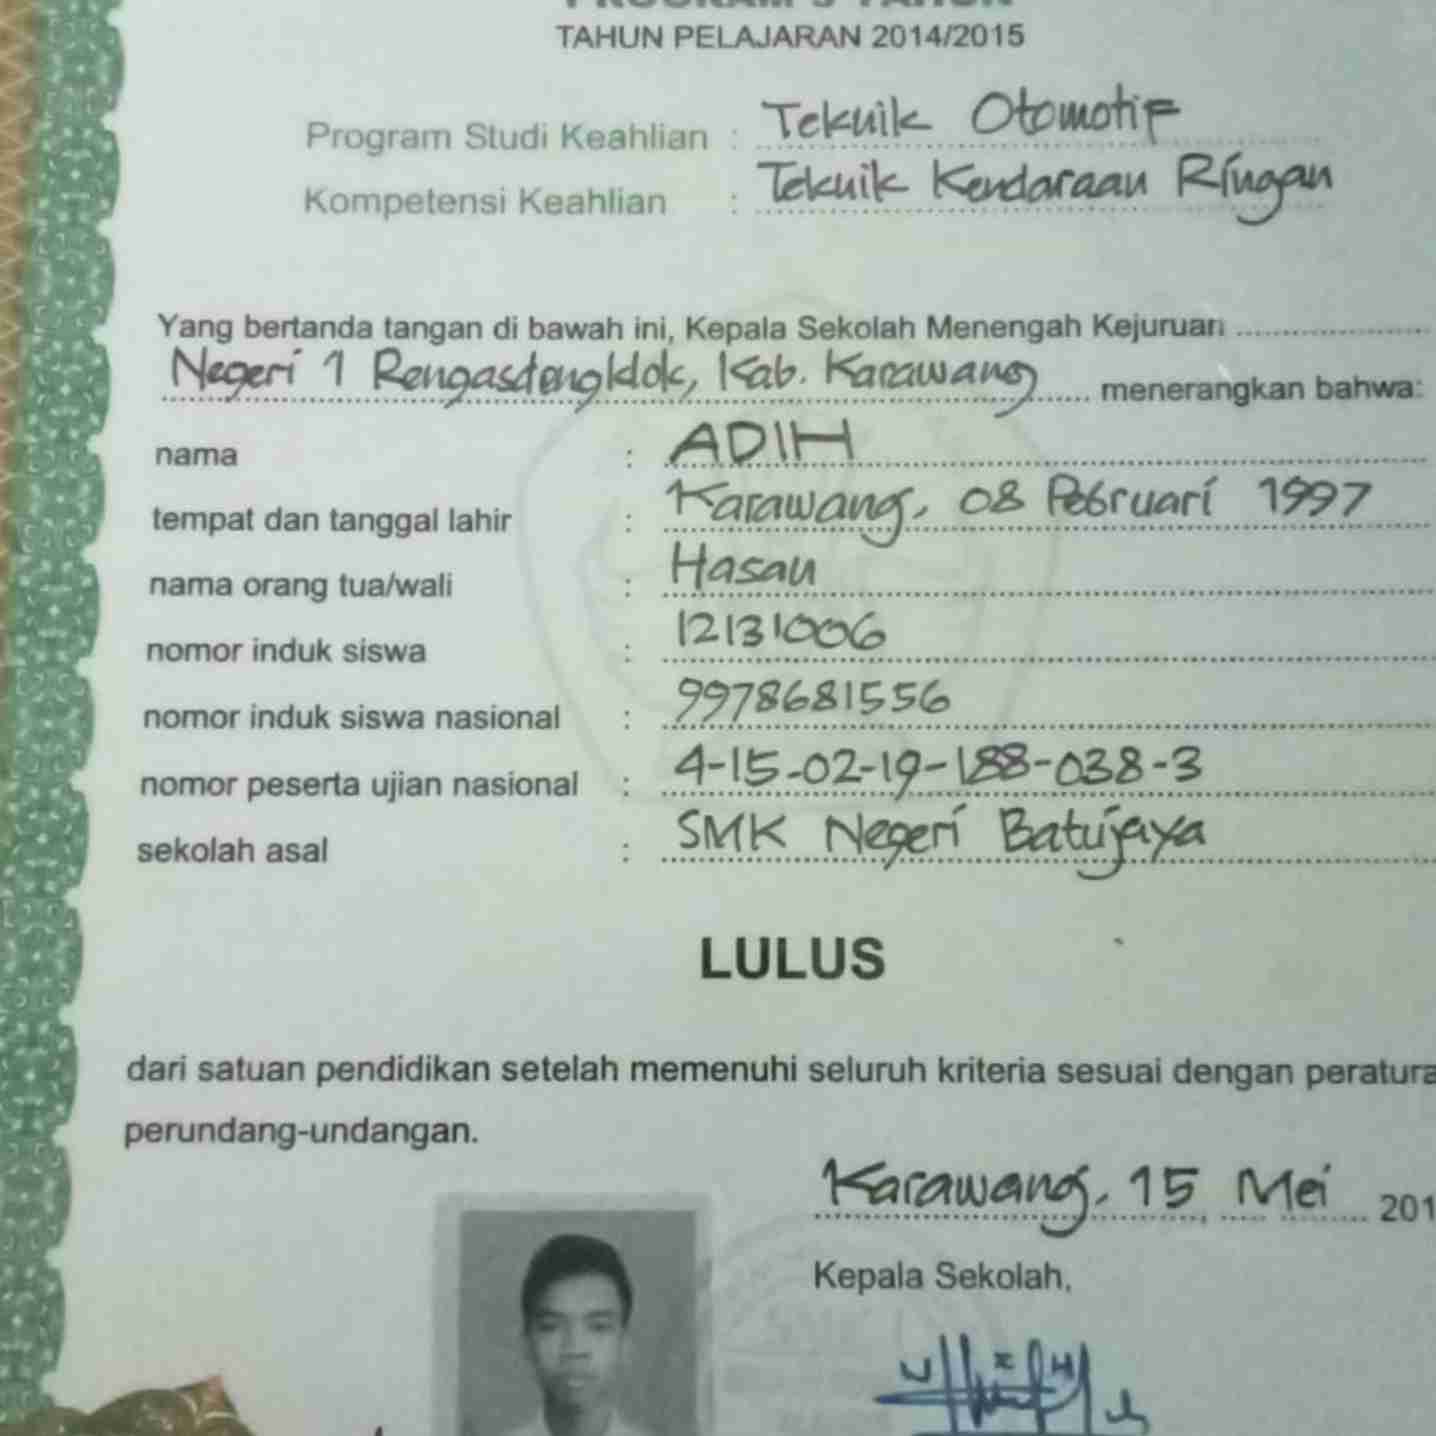 PROGRAM 3 TAHUN
TAHUN PELAJARAN 2014/2015
Program Studi Keahlian : Teknik Otomotif
Kompetensi Keahlian : Teknik Kendaraan Ringan
Yang bertanda tangan di bawah ini, Kepala Sekolah Menengah Kejuruan
Negeri 1 Rengasdengklok, Kab. Karawang menerangkan bahwa:
nama : ADIH
tempat dan tanggal lahir : Karawang, 08 Pebruari 1997
nama orang tua/wali : Hasan
nomor induk siswa : 12131006
nomor induk siswa nasional : 9978681556
nomor peserta ujian nasional : 4-15-02-19-188-038-3
sekolah asal : SMK Negeri Batujaya
LULUS
dari satuan pendidikan setelah memenuhi seluruh kriteria sesuai dengan peratura
perundang-undangan.
Karawang, 15 Mei 201
Kepala Sekolah,